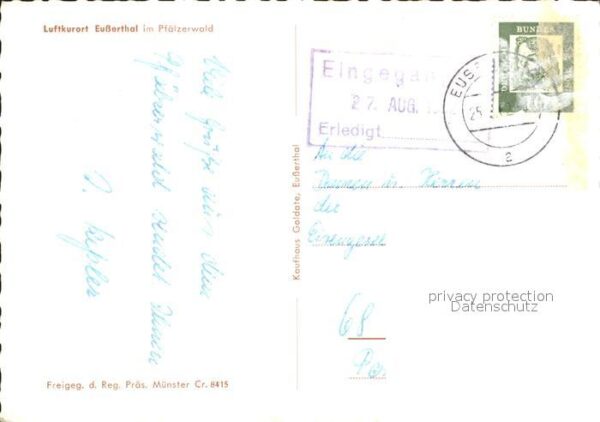 Luftkurort Eußerthal im Pfälzerwald
Viele Grüße aus dem
Pfälzerwald sendet Ihnen
J. Kepler
Freigeg. d. Reg. Präs. Münster Cr. 8415
Kaufhaus Goldate, Eußerthal
Eingegan
27. AUG.
Erledigt
BUNDES
EUS
25.
a
An die
Damen u. Herren
der
68
privacy protection
Datenschutz